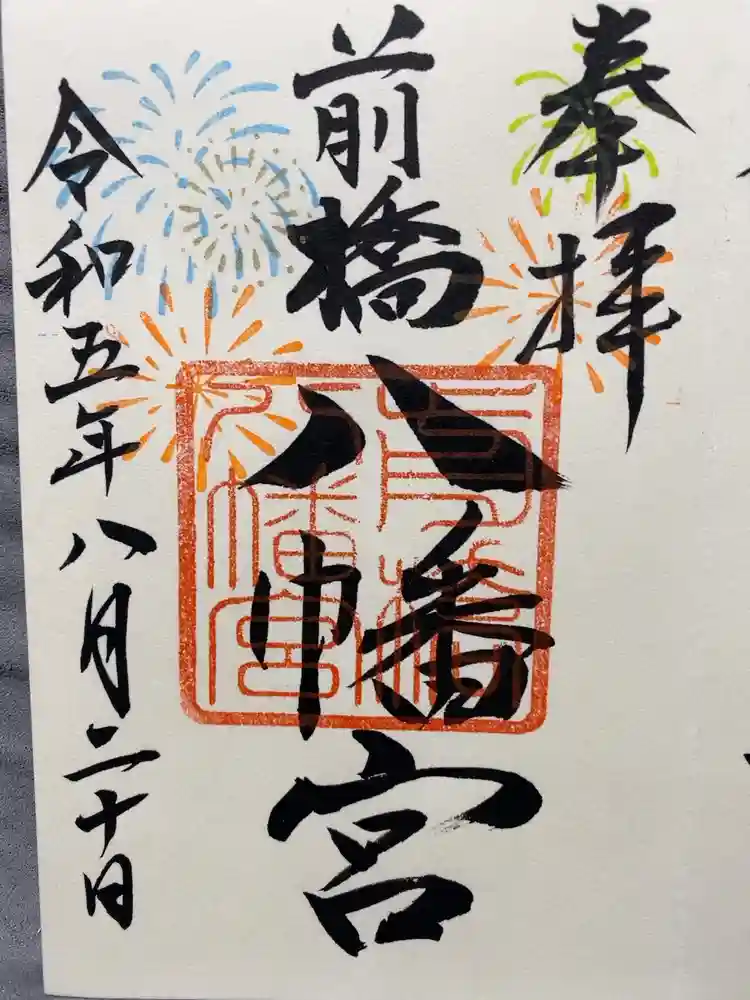 奉拝
前橋八幡宮
令和五年八月二十日
前橋八幡宮